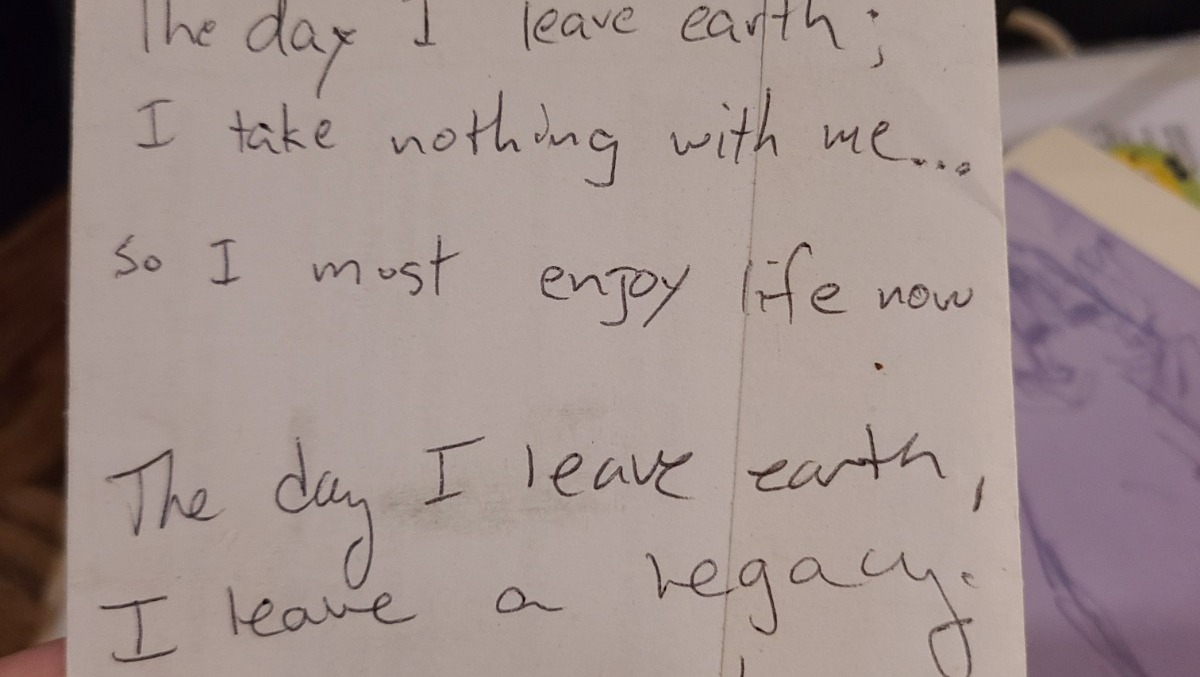 The day I leave earth;
I take nothing with me...
so I must enjoy life now
The day I leave earth,
I leave a legacy.